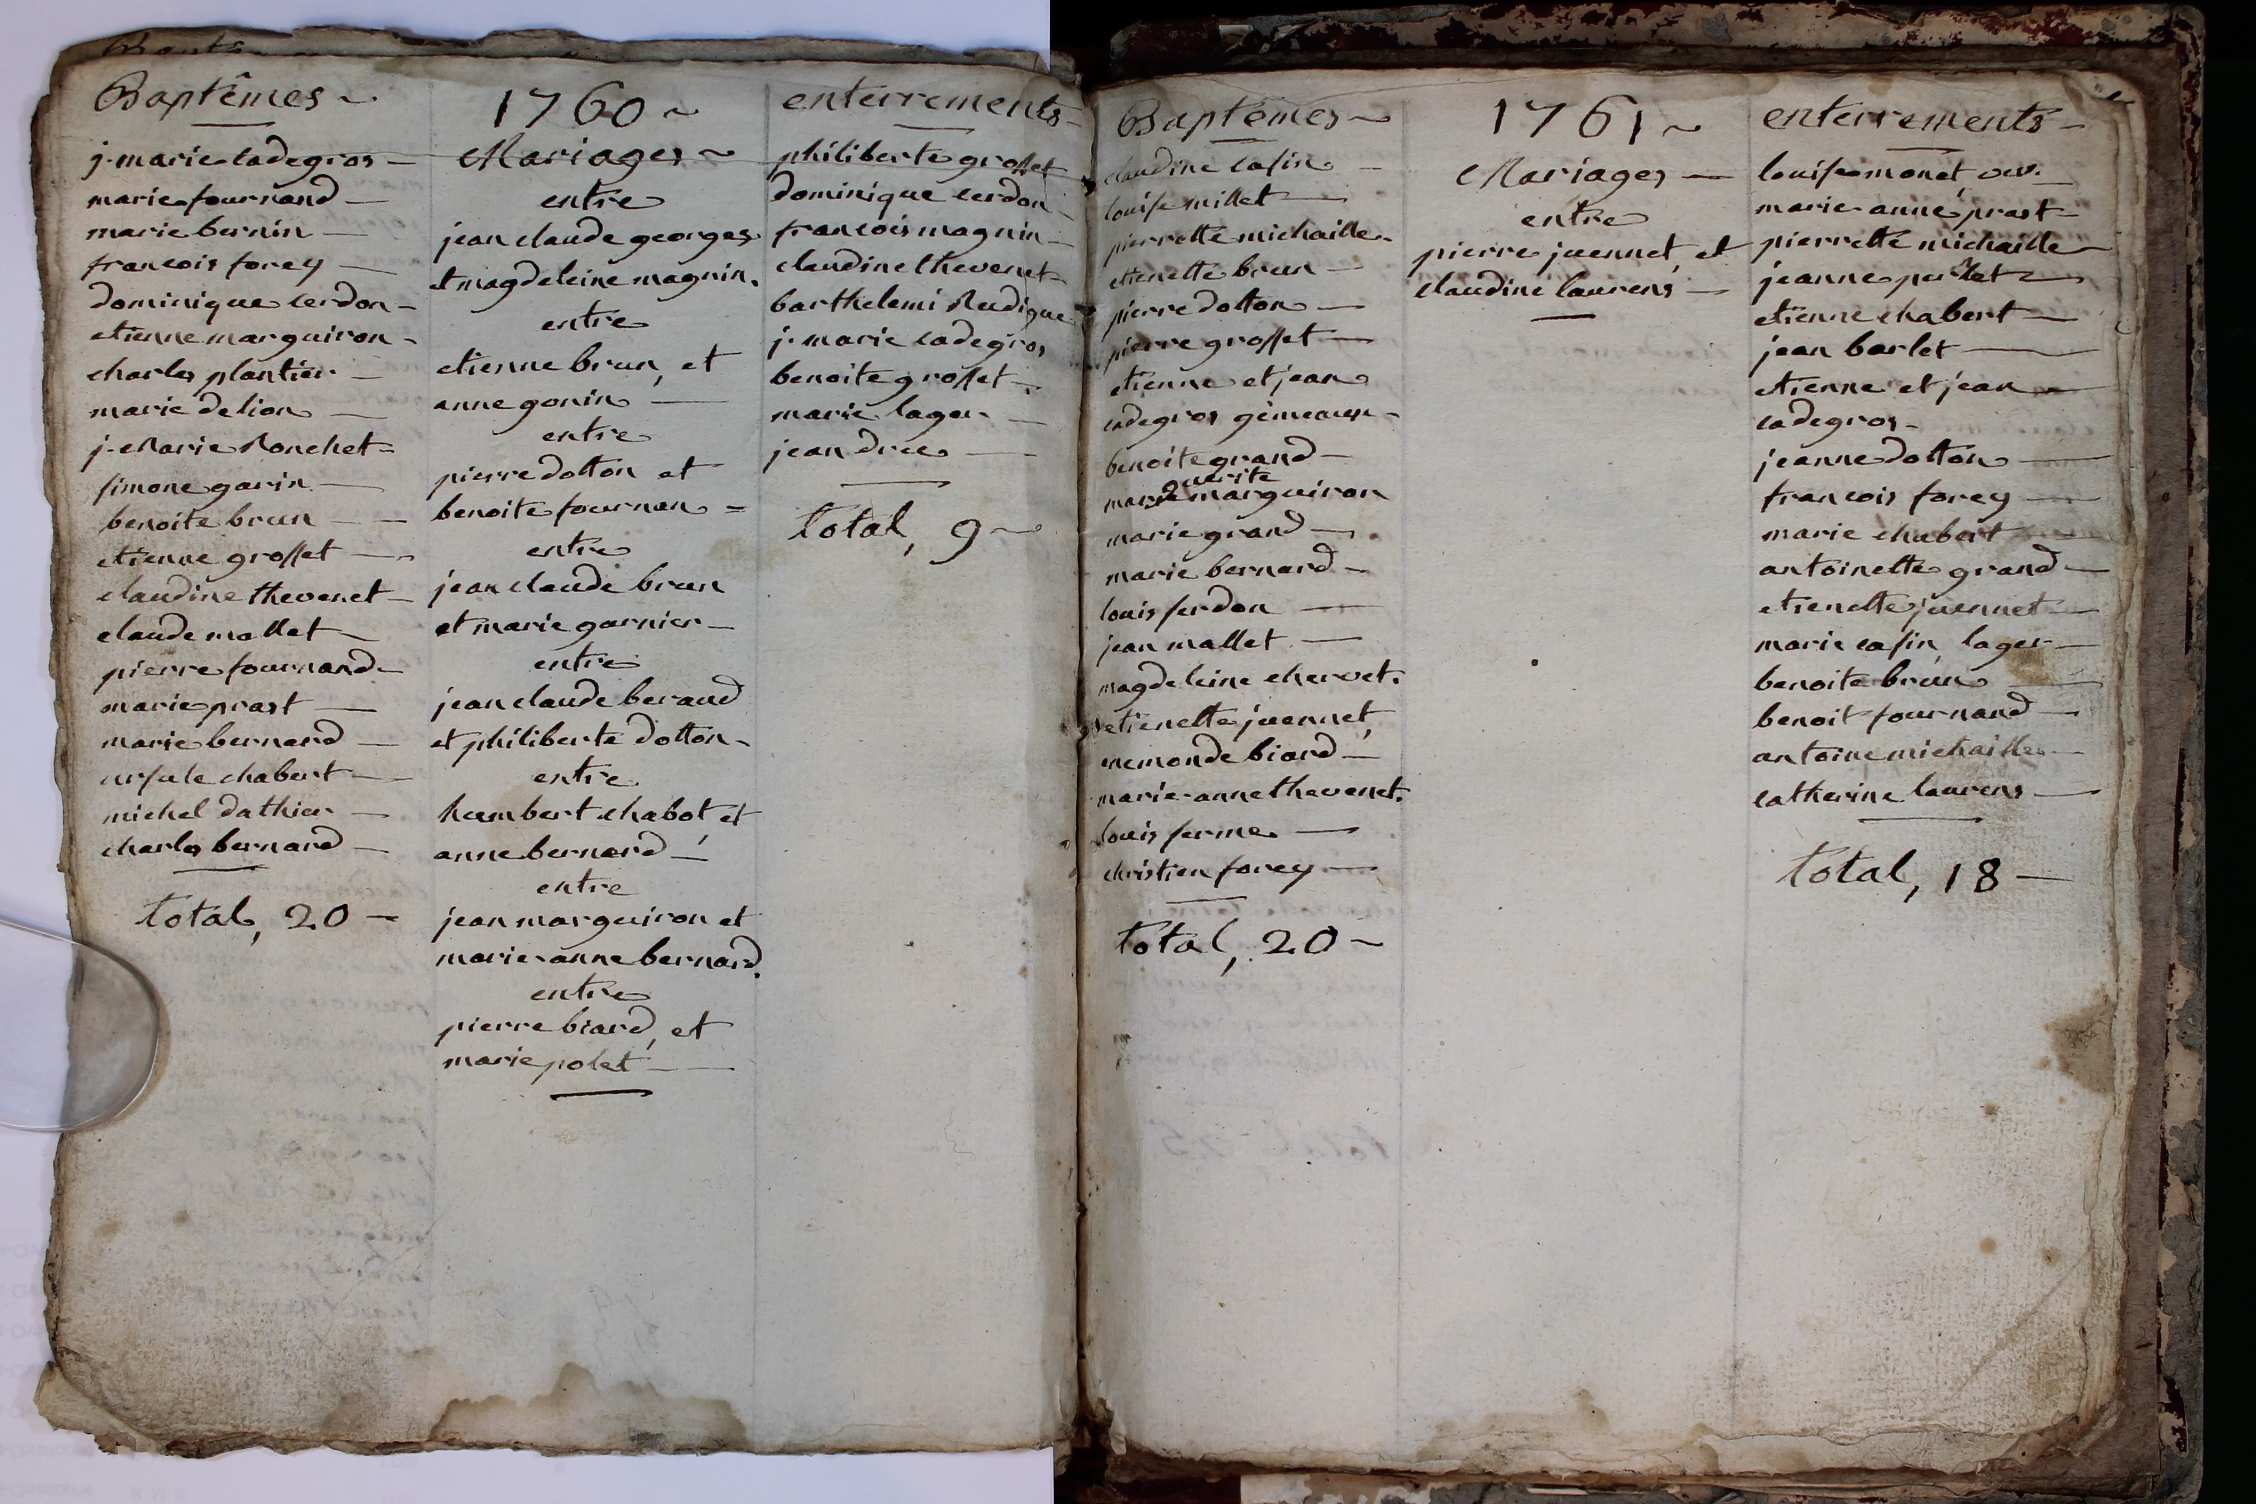 Baptêmes
j. marie cadegros
marie fournand
marie bernin
francois forey
dominique cerdon
etienne marguiron
charles plantier
marie delion
j. Marie Ronchet
simone garin
benoite brun
etienne grosset
claudine thevenet
claude mallet
pierre fournand
marie prast
marie bernard
ursule chabert
michel dathier
charles bernard
total, 20
1760
Mariages
entre
jean claude georges
et magdeleine magnin.
entre
etienne brun, et
anne gonin
entre
pierre dotton et
benoite fournan
entre
jean claude brun
et marie garnier
entre
jean claude beraud
et philiberte dotton
entre
humbert chabot, et
anne bernard
entre
jean marguiron et
marie-anne bernard.
entre
pierre biard, et
marie polet
enterrements
philiberte grosset
dominique cerdon
francois magnin
claudine thevenet
barthelemi
j. marie cadegros
benoite grosset
marie lager
jean dree
total, 9
Baptêmes
claudine casin
louise millet
pierrette michaille
etienette brun
pierre dotton
pierre grosset
etienne et jean
cadegros gémeaux
benoite grand
guerite
marguiron
marie grand
marie bernard
louis serdon
jean mallet
magdeleine chervet.
etienette juennet,
enemonde biard
marie-anne thevenet.
louis ferme
christien forey
total, 20
1761
Mariages
entre
pierre juennet, et
claudine laurens
enterrements
louise monet,
marie-anne prast
pierrette michaille
jeanne
etienne chabert
jean barlet
etienne et jean
cadegros
jeanne dotton
francois forey
marie chabert
antoinette grand
etienette juennet
marie casin, lager
benoite brun
benoit fournand
antoine michaille
catherine laurens
total, 18